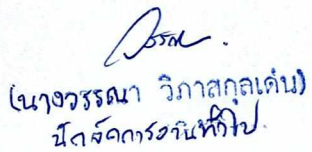 วรรณา
(นางวรรณา วิภาสกุลเด่น)
นักจัดการงานทั่วไป